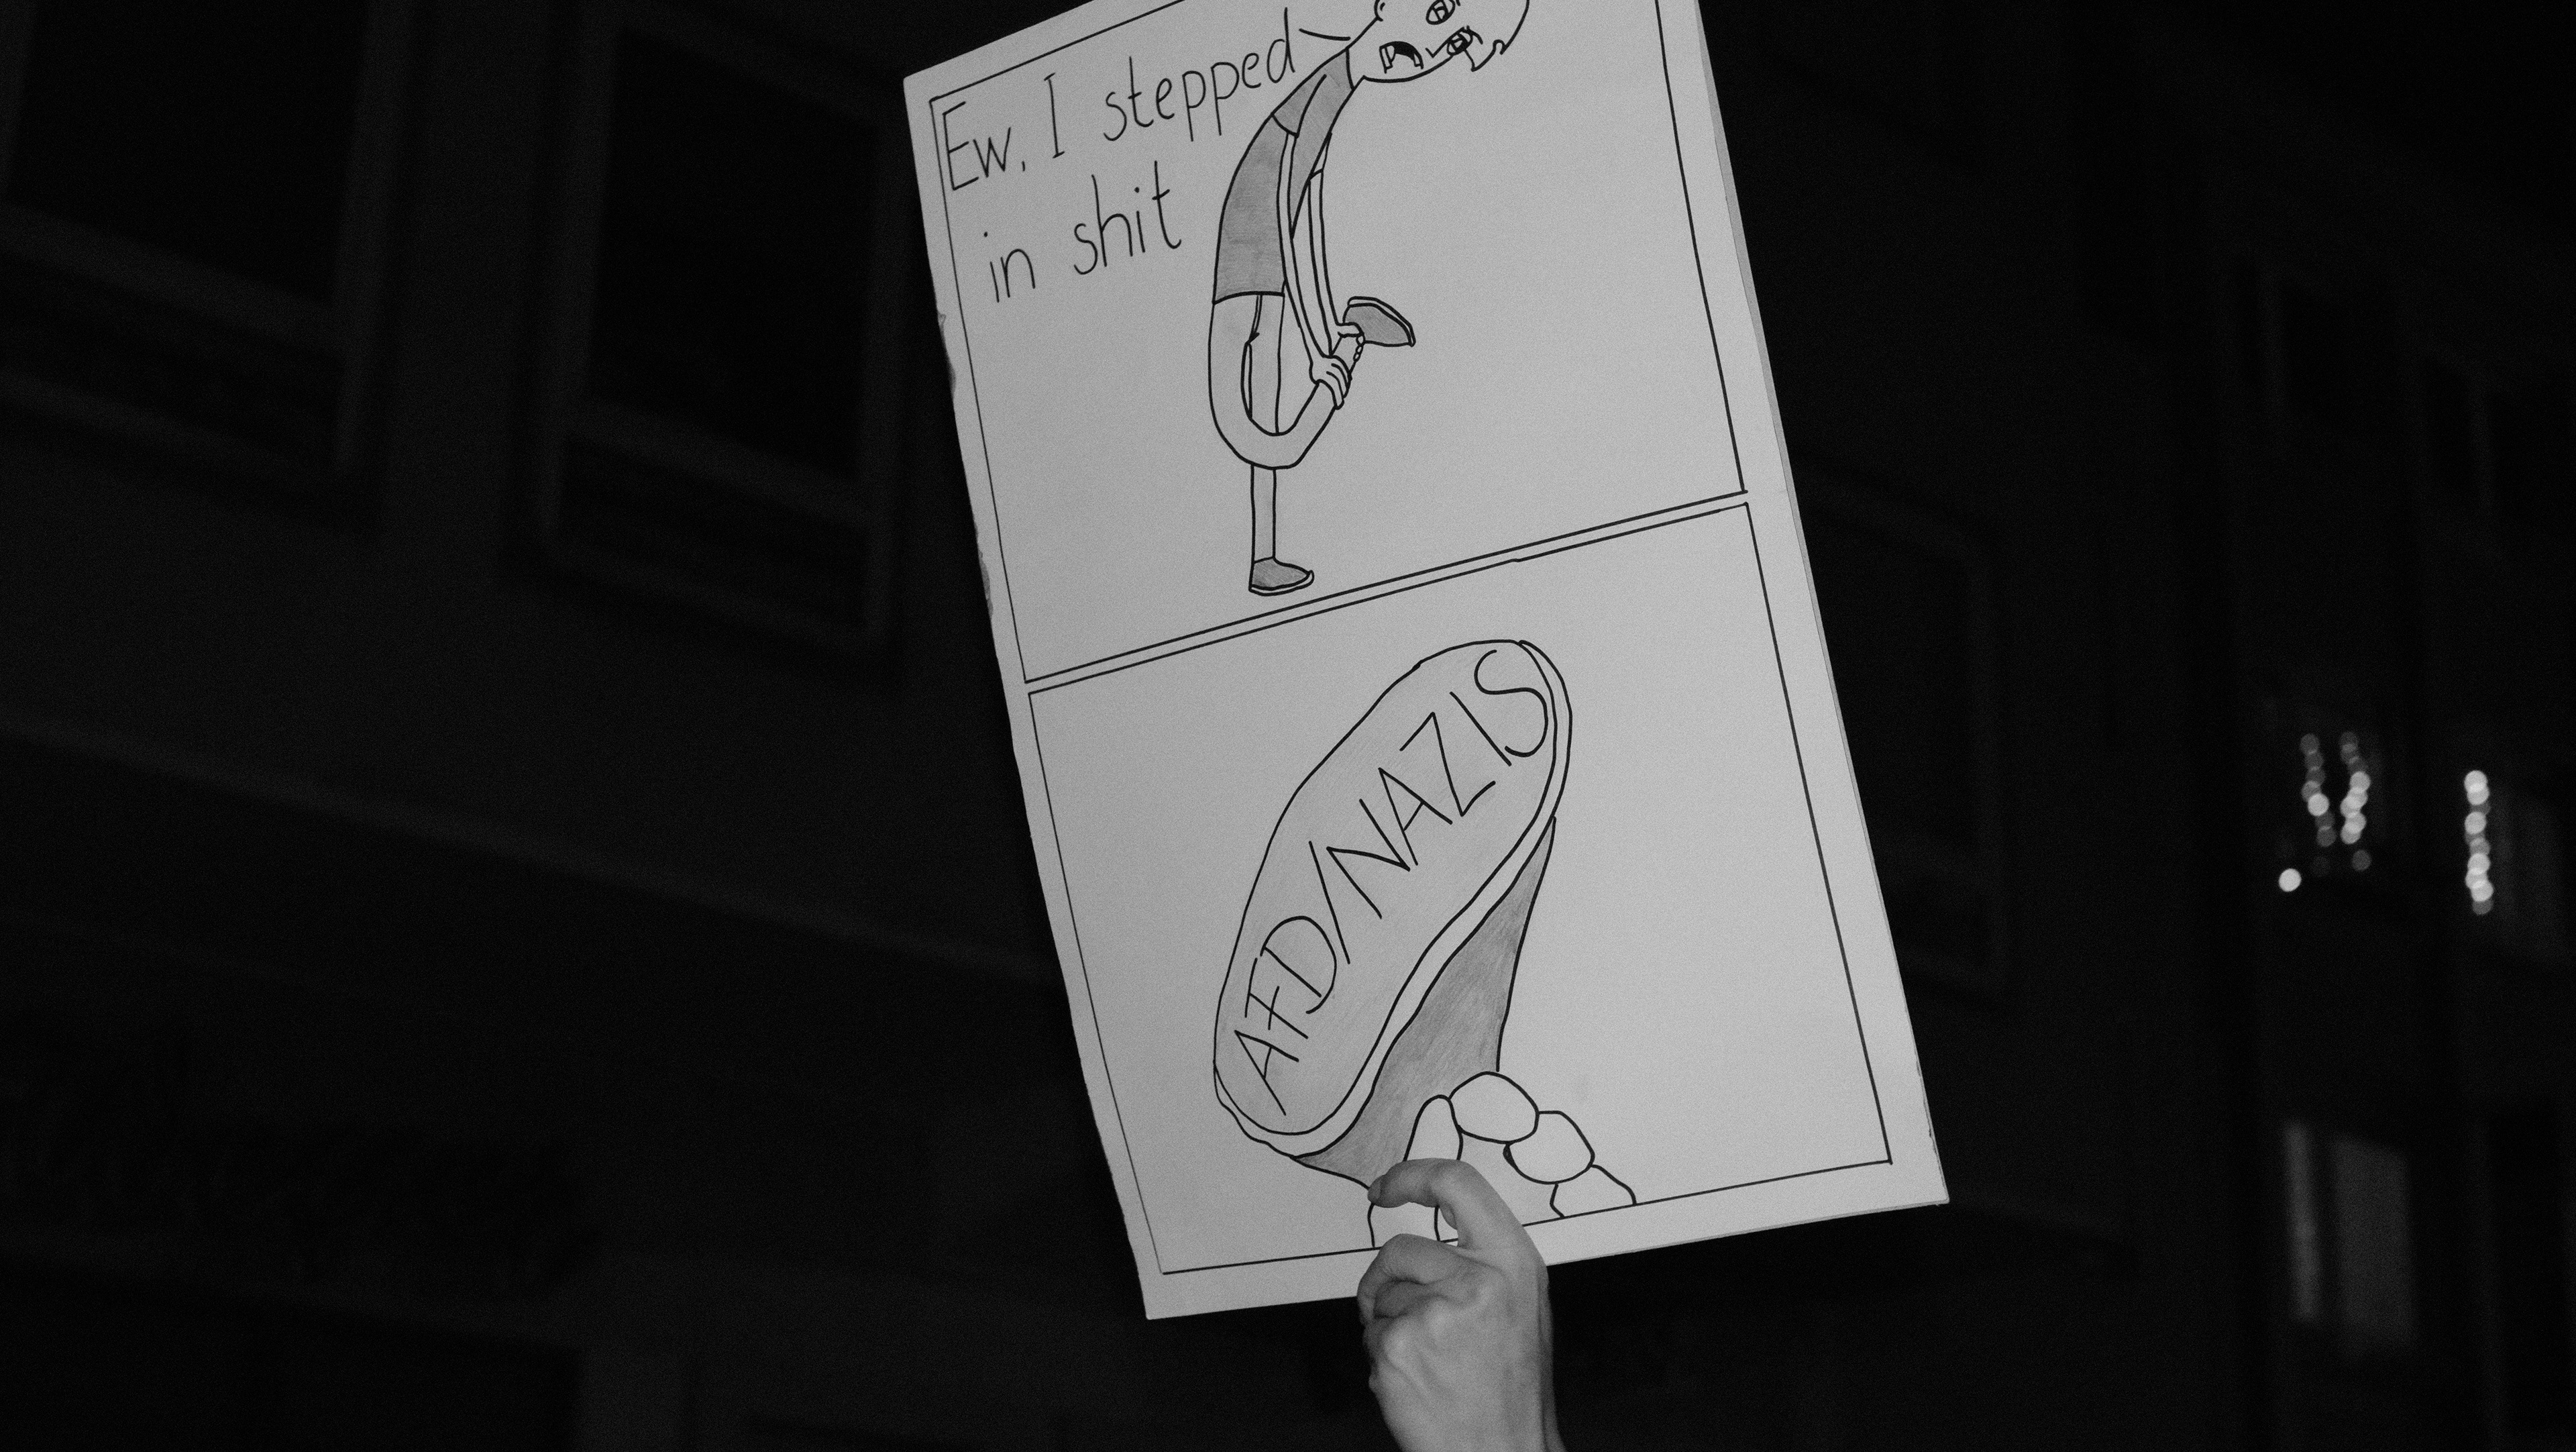 Ew, I stepped
in shit
AFD/NAZIS